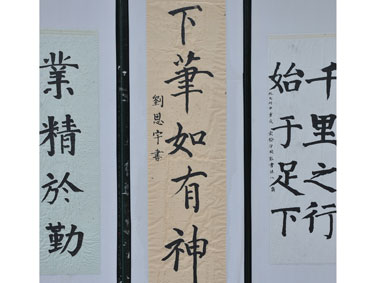 千里之行
始于足下
下筆如有神
劉思宇書
業精於勤